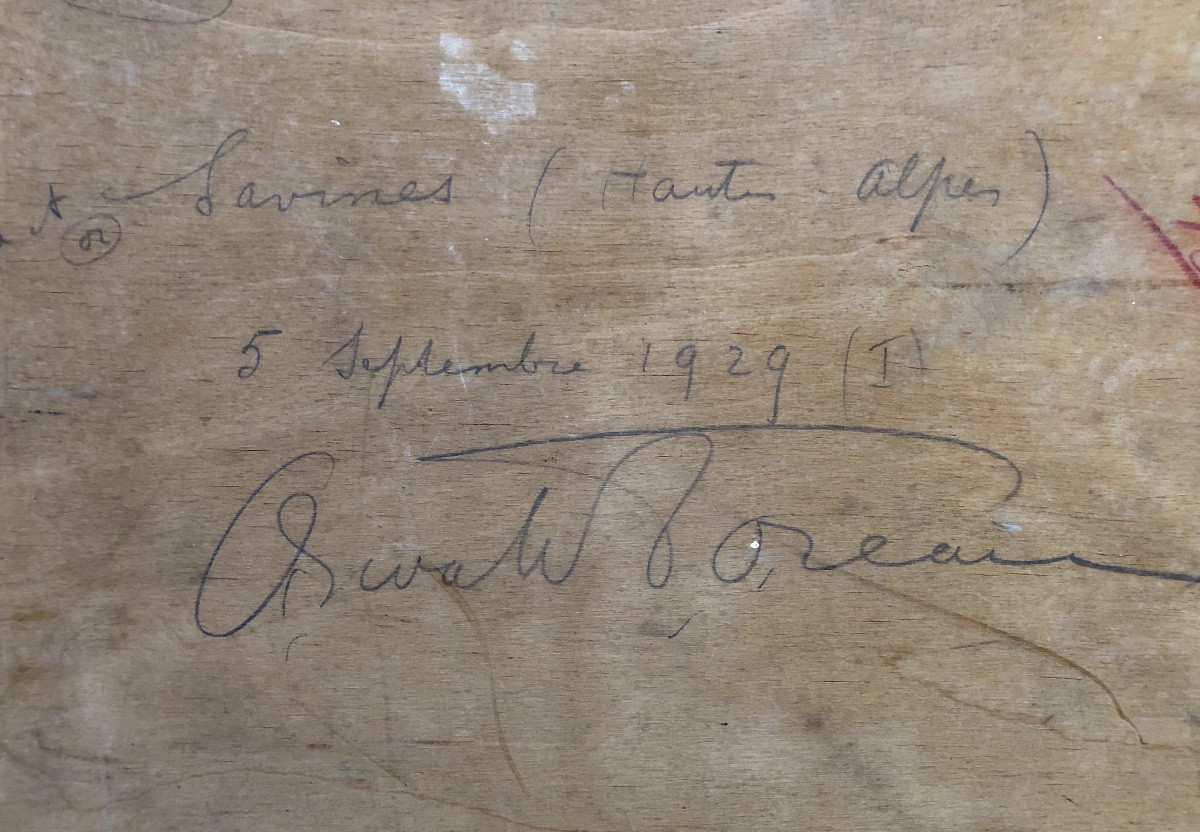 Savines (Hautes-Alpes)
5 Septembre 1929 (I)
Oswald Poreau